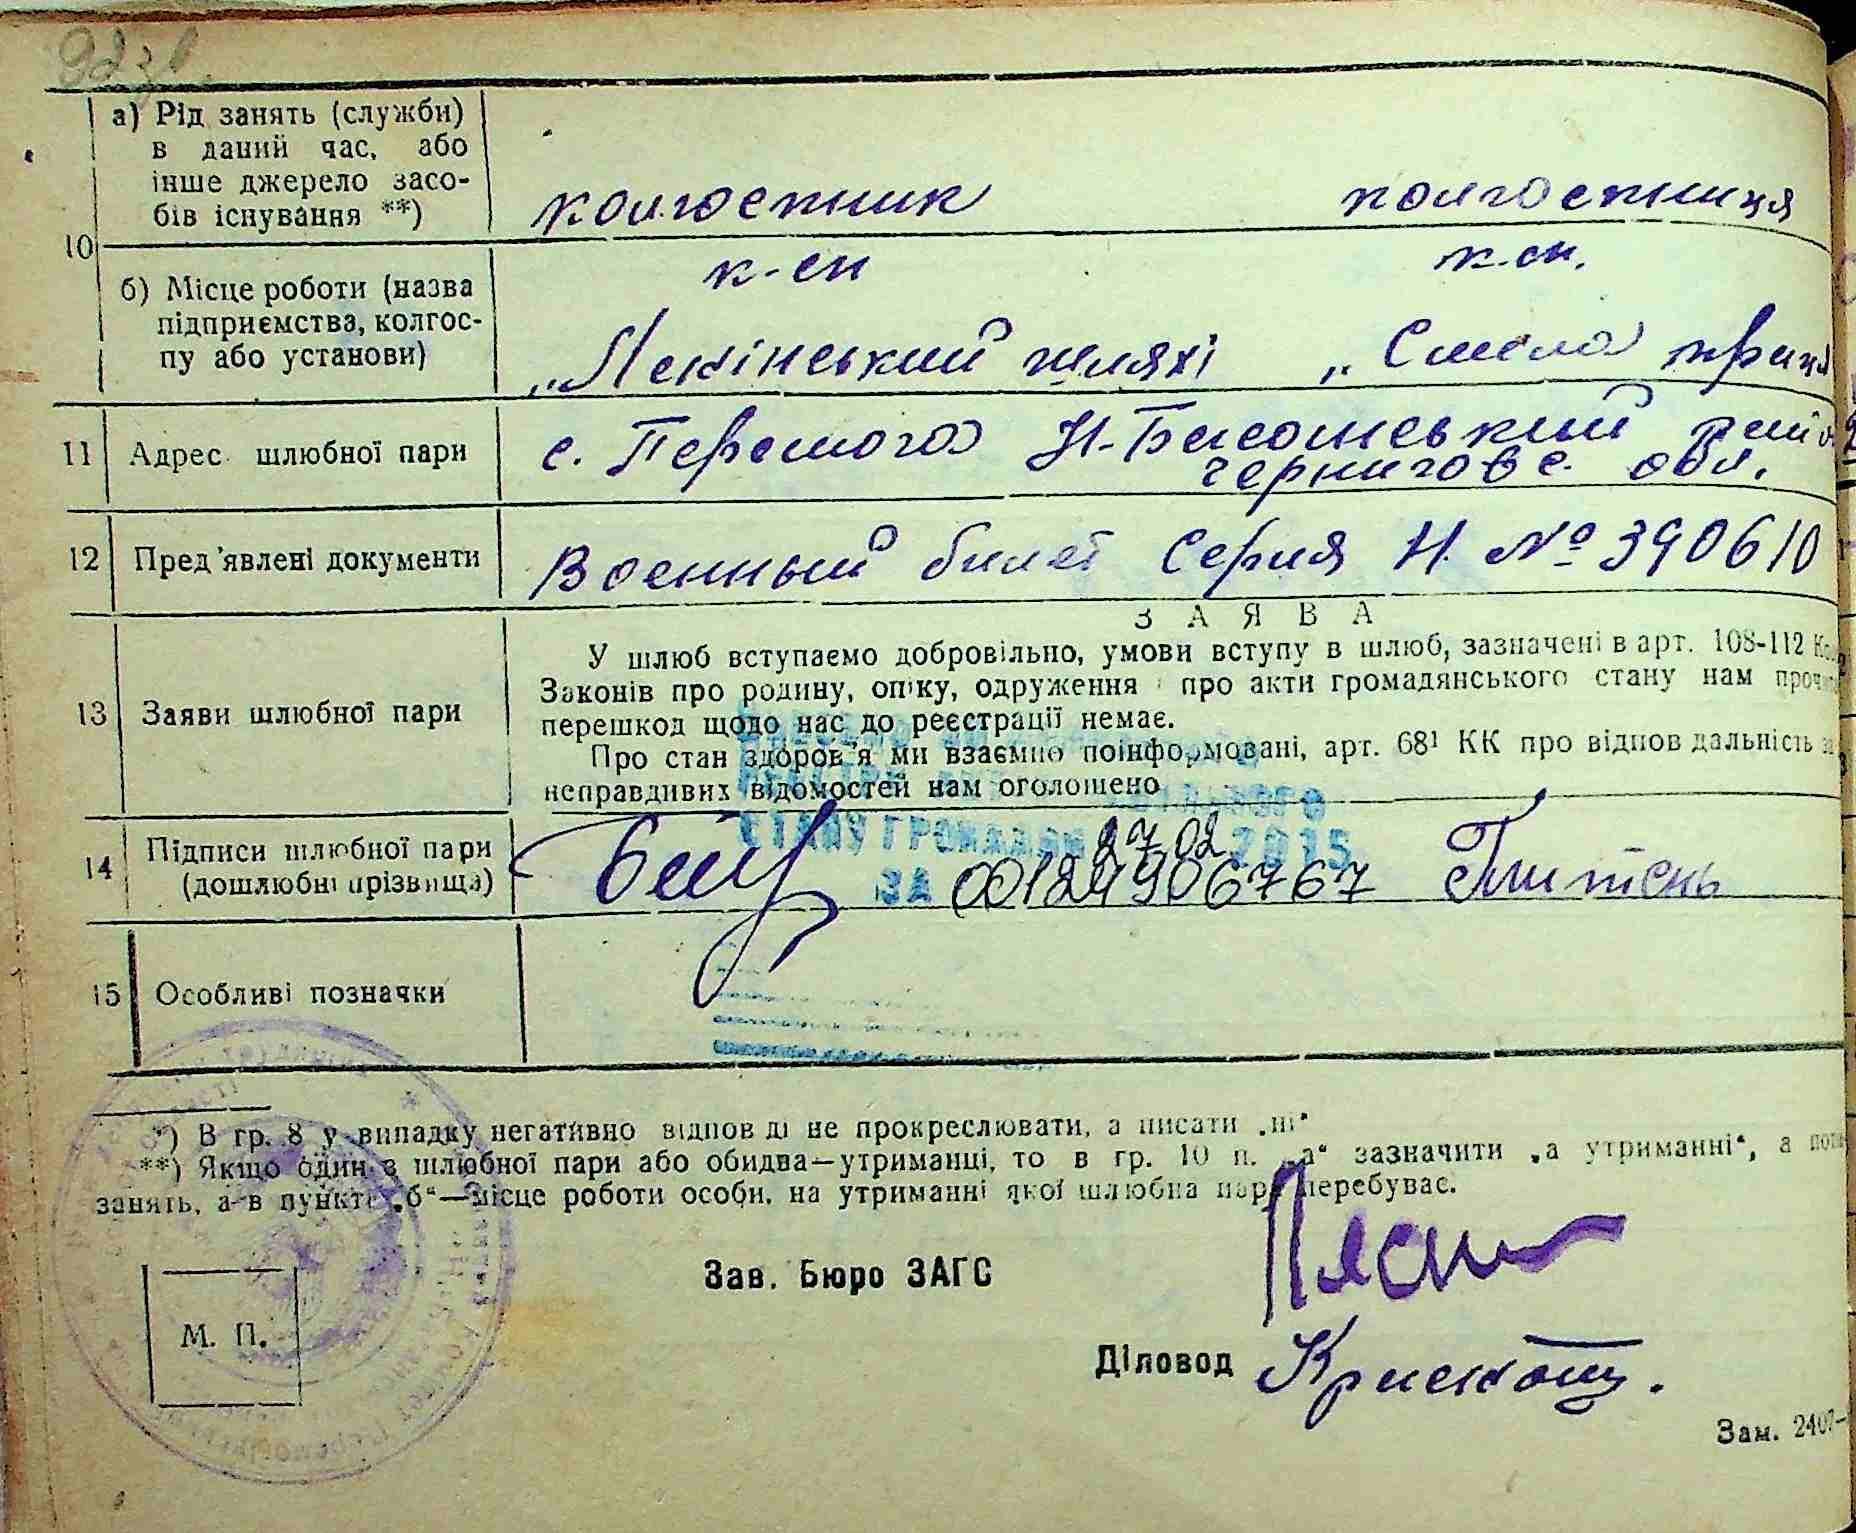 а) Рід занять (служби)
в даний час, або
інше джерело засо-
бів існування **)
колгоспник колгоспниця
10
к-сп к-сп.
б) Місце роботи (назва
підприємства, колгос-
пу або установи)
„Ленінський шлях „Смела
11 Адрес шлюбної пари
с. Перемога Н-Басанський
Черниговс. обл.
12 Пред'явлені документи Военный билет Серия Н. № 390610
З А Я В А
У шлюб вступаємо добровільно, умови вступу в шлюб, зазначені в арт. 108-112
Законів про родину, опіку, одруження про акти громадянського стану нам
перешкод щодо нас до реєстрації немає.
13 Заяви шлюбної пари
Про стан здоров'я ми взаємно поінформовані, арт. 68¹ КК про відпов дальність
неправдивих відомостей нам оголошено
СТАНУ ГРОМАДЯН 27 02 2015
14 Підписи шлюбної пари
(дошлюбні прізвища)
ЗА 001249906767
15 Особливі позначки
*) В гр. 8 у випадку негативно відпов ді не прокреслювати, а писати „ні“
**) Якщо один з шлюбної пари або обидва—утриманці, то в гр. 10 п. „а“ зазначити „а утриманні“, а
занять, а в пункті „б“—місце роботи особи, на утриманні якої шлюбна пара перебуває.
Зав. Бюро ЗАГС
М. П.
Діловод
Зам. 2407-